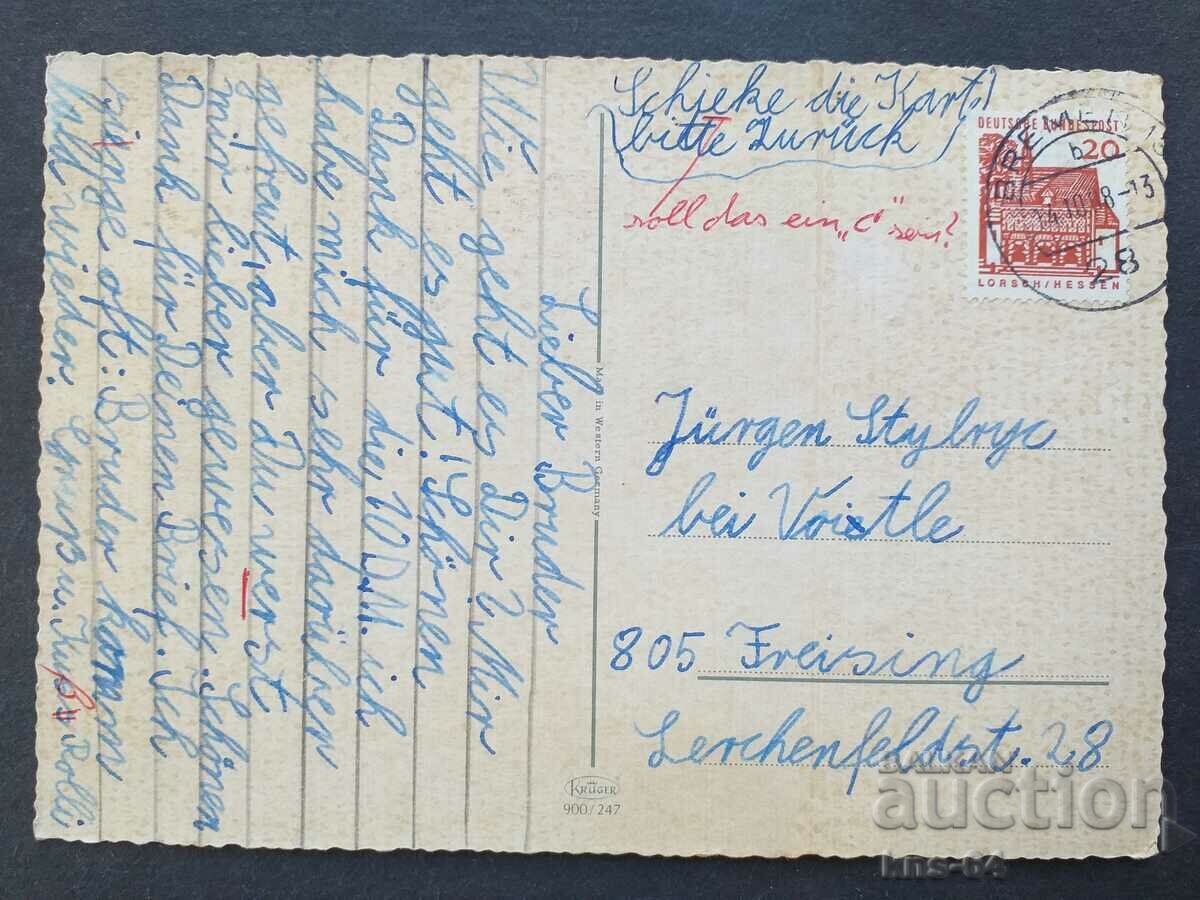 Lieber Bruder
Wie geht es Dir? Mir
geht es gut! Schönen
Dank für die 10 DM. ich
habe mich sehr darüber
gefreut, aber Du werst
mir lieber gewesen. Schönen
Dank für Deinen Brief. Ich
sage oft: Bruder komm
bald wieder. Gruß u. Kuß Rolli
Schieke die Karte
bitte Zurück
soll das ein „c" sein?
DEUTSCHE BUNDESPOST
20
LORSCH/HESSEN
BREMEN
14.10.68-13
28
Jürgen Stylryc
bei Voistle
805 Freising
Lerchenfeldst. 28
Made in Western Germany
KRÜGER
900/247
BALKAN
auction
kns-64